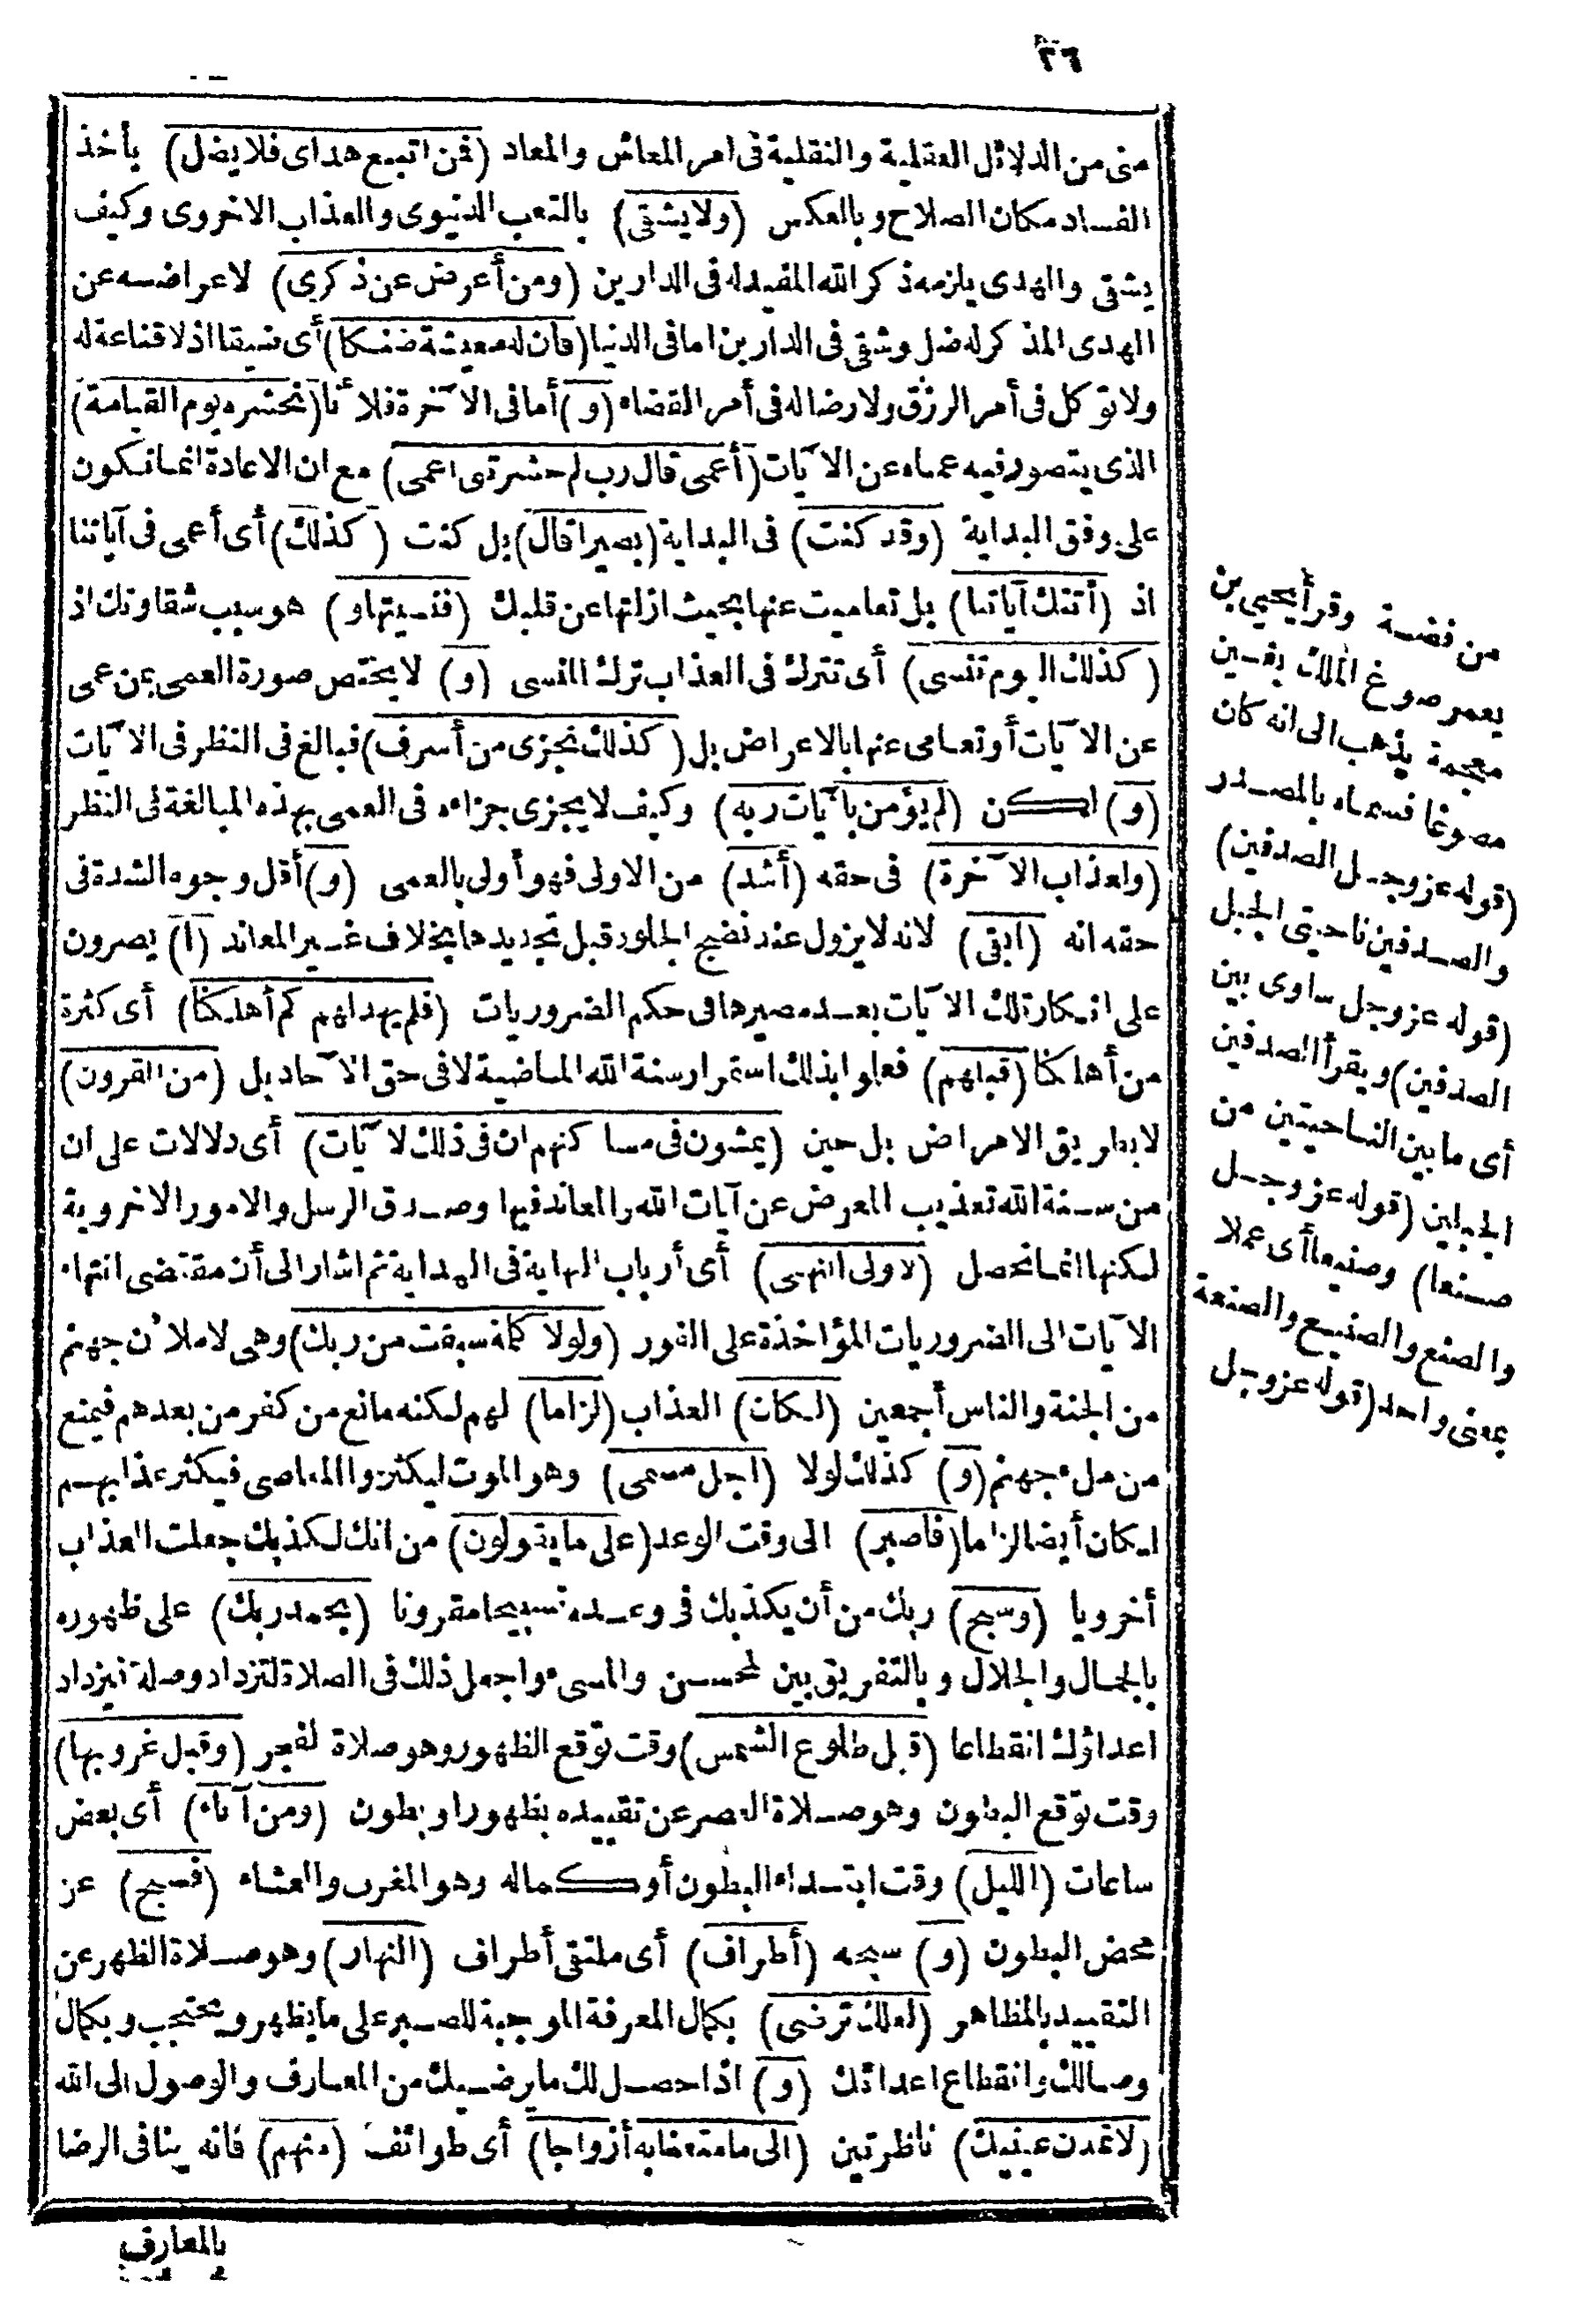 ٢٦
منى من الدلائل العقلية والنقلية فى امر المعاش والمعاد (فمن اتبع هداى فلا يضل) يأخذ
الفساد مكان الصلاح وبالعكس (ولا يشقى) بالتعب الدنيوى والعذاب الاخروى وكيف
يشقى والهدى يلزمه ذكر الله المفيد له فى الدارين (ومن أعرض عن ذكرى) لاعراضه عن
الهدى المذكر له ضل وشقى فى الدارين اما فى الدنيا (فان له معيشة ضنكا) أى ضيقا اذ لا قناعة له
ولا توكل فى أمر الرزق ولا رضا له فى أمر القضاء (و) أما فى الآخرة فلأنا (نحشره يوم القيامة)
الذى يتصور فيه عماه عن الآيات (أعمى قال رب لم حشرتنى اعمى) مع ان الاعادة انما تكون
على وفق البداية (وقد كنت) فى البداية (بصيرا قال) بل كنت (كذلك) أى أعمى فى آياتنا
اذ (أتتك آياتنا) بل تعاميت عنها بحيث ازلتها عن قلبك (فنسيتها و) هو سبب شقاوتك اذ
(كذلك اليوم تنسى) أى تترك فى العذاب ترك المنسى (و) لا يختص صورة العمى بمن عمى
عن الآيات أو تعامى عنها بالاعراض بل (كذلك نجزى من أسرف) فبالغ فى النظر فى الآيات
(و) لكن (لم يؤمن بآيات ربه) وكيف لا يجزى جزاءه فى العمى بهذه المبالغة فى النظر
(ولعذاب الآخرة) فى حقه (أشد) من الاولى فهو أولى بالعمى (و) أقل وجوه الشدة فى
حقه انه (ابقى) لانه لا يزول عند نضج الجلود قبل تجديدها بخلاف غير المعاند (ا) يصرون
على انكار تلك الآيات بعد مصيرها فى حكم الضروريات (فلم يهد لهم كم أهلكنا) أى كثرة
من أهلكنا (قبلهم) فعلوا بذلك استمرار سنة الله الماضية لا فى حق الآحاد بل (من القرون)
لا بطريق الامراض بل حين (يمشون فى مساكنهم ان فى ذلك لآيات) أى دلالات على ان
من سنة الله تعذيب المعرض عن آيات الله والمعاند فيها وصدق الرسل والامور الاخروية
لكنها انما تحصل (لاولى النهى) أى أرباب النهاية فى الهداية ثم اشار الى أن مقتضى انتهاء
الآيات الى الضروريات المؤاخذة على الفور (ولولا كلمة سبقت من ربك) وهى لاملأن جهنم
من الجنة والناس أجمعين (لكان) العذاب (لزاما) لهم لكنه مانع من كفر من بعدهم فيمنع
من ملء جهنم (و) كذلك لولا (اجل مسمى) وهو الموت ليكثروا المعاصى فيكثر عذابهم
لكان أيضا لزاما (فاصبر) الى وقت الوعد (على ما يقولون) من انك لكذبك جعلت العذاب
أخرويا (وسبح) ربك من أن يكذبك فى وعده تسبيحا مقرونا (بحمد ربك) على ظهوره
بالجمال والجلال وبالتفريق بين المحسن والمسىء واجعل ذلك فى الصلاة لتزداد وصلة فيزداد
اعداؤك انقطاعا (قبل طلوع الشمس) وقت توقع الظهور وهو صلاة الفجر (وقبل غروبها)
وقت توقع البطون وهو صلاة العصر عن تقييده بظهور او بطون (ومن آناء) أى بعض
ساعات (الليل) وقت ابتداء البطون أو كماله وهو المغرب والعشاء (فسبح) عن
محض البطون (و) سبحه (أطراف) أى ملتقى أطراف (النهار) وهو صلاة الظهر عن
التقييد بالمظاهر (لعلك ترضى) بكمال المعرفة الموجبة للصبر على ما يظهر ويحتجب وبكمال
وصالك وانقطاع اعدائك (و) اذا حصل لك ما يرضيك من المعارف والوصول الى الله
(لا تمدن عينيك) ناظرتين (الى ما متعنا به أزواجا) أى طوائف (منهم) فانه ينافى الرضا
بالمعارف
من فضة وقرأ يحيى بن
يعمر صوغ الملك بغين
معجمة يذهب الى انه كان
مصوغا فسماه بالمصدر
(قوله عز وجل الصدفين)
والصدفين ناحيتى الجبل
(قوله عز وجل ساوى بين
الصدفين) ويقرأ الصدفين
أى ما بين الناحيتين من
الجبلين (قوله عز وجل
صنعا) وصنيعا أى عملا
والصنع والصنيع والصنعة
بمعنى واحد (قوله عز وجل